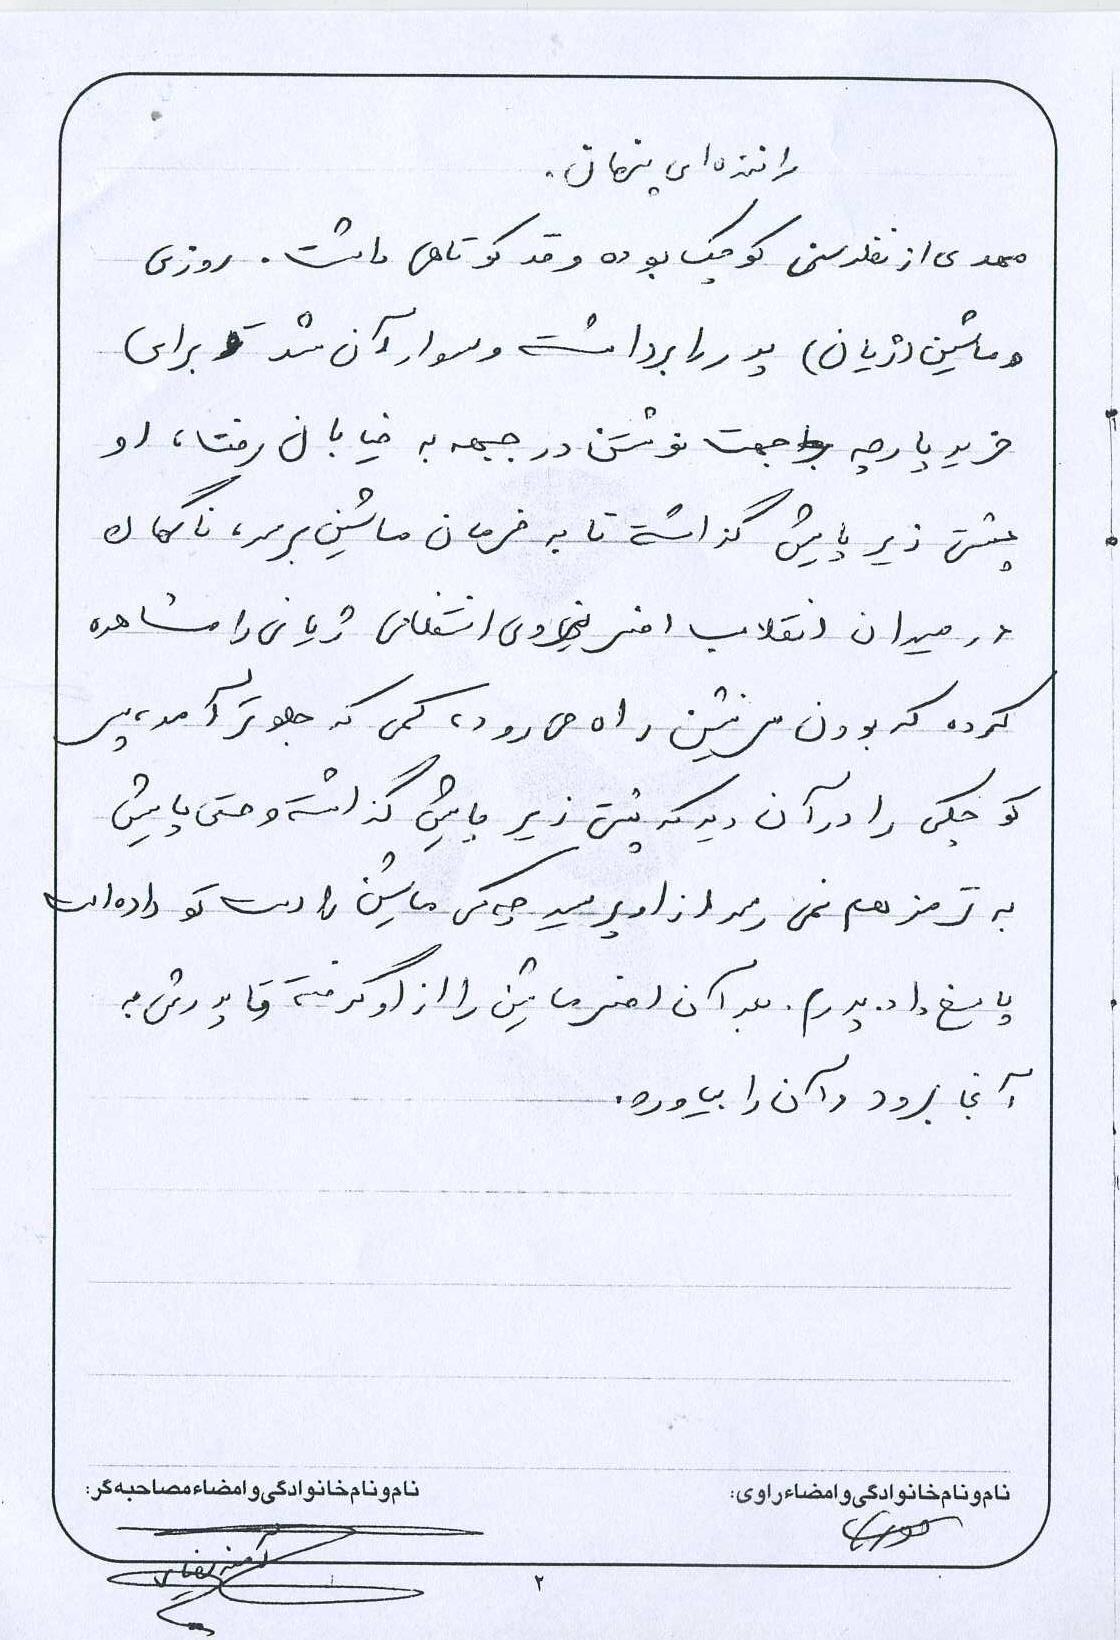 راننده‌ای پنهان.
مهدی از نظر سنی کوچک بوده و قد کوتاهی داشت. روزی
ماشین (ژیان) پدر را برداشته و سوار آن شد و برای
خرید پارچه جهت نوشتن در جبهه به خیابان رفت، او
پشتی زیر پایش گذاشته تا به فرمان ماشین برسد، ناگهان
در میدان انقلاب افسر نیروی انتظامی ژیانی را مشاهده
کرده که بدون سرنشین راه می رود، کمی که جلوتر آمد، پسر
کوچکی را در آن دید که پشتی زیر پایش گذاشته و حتی پایش
به ترمز هم نمی رسد از او پرسید چه کسی ماشین را دست تو داده است
پاسخ داد. پدرم. بعد آن افسر ماشین را از او گرفته تا پدرش به
آنجا برود و آن را بیاورد.
نام و نام خانوادگی و امضاء راوی:
نام و نام خانوادگی و امضاء مصاحبه گر:
۲